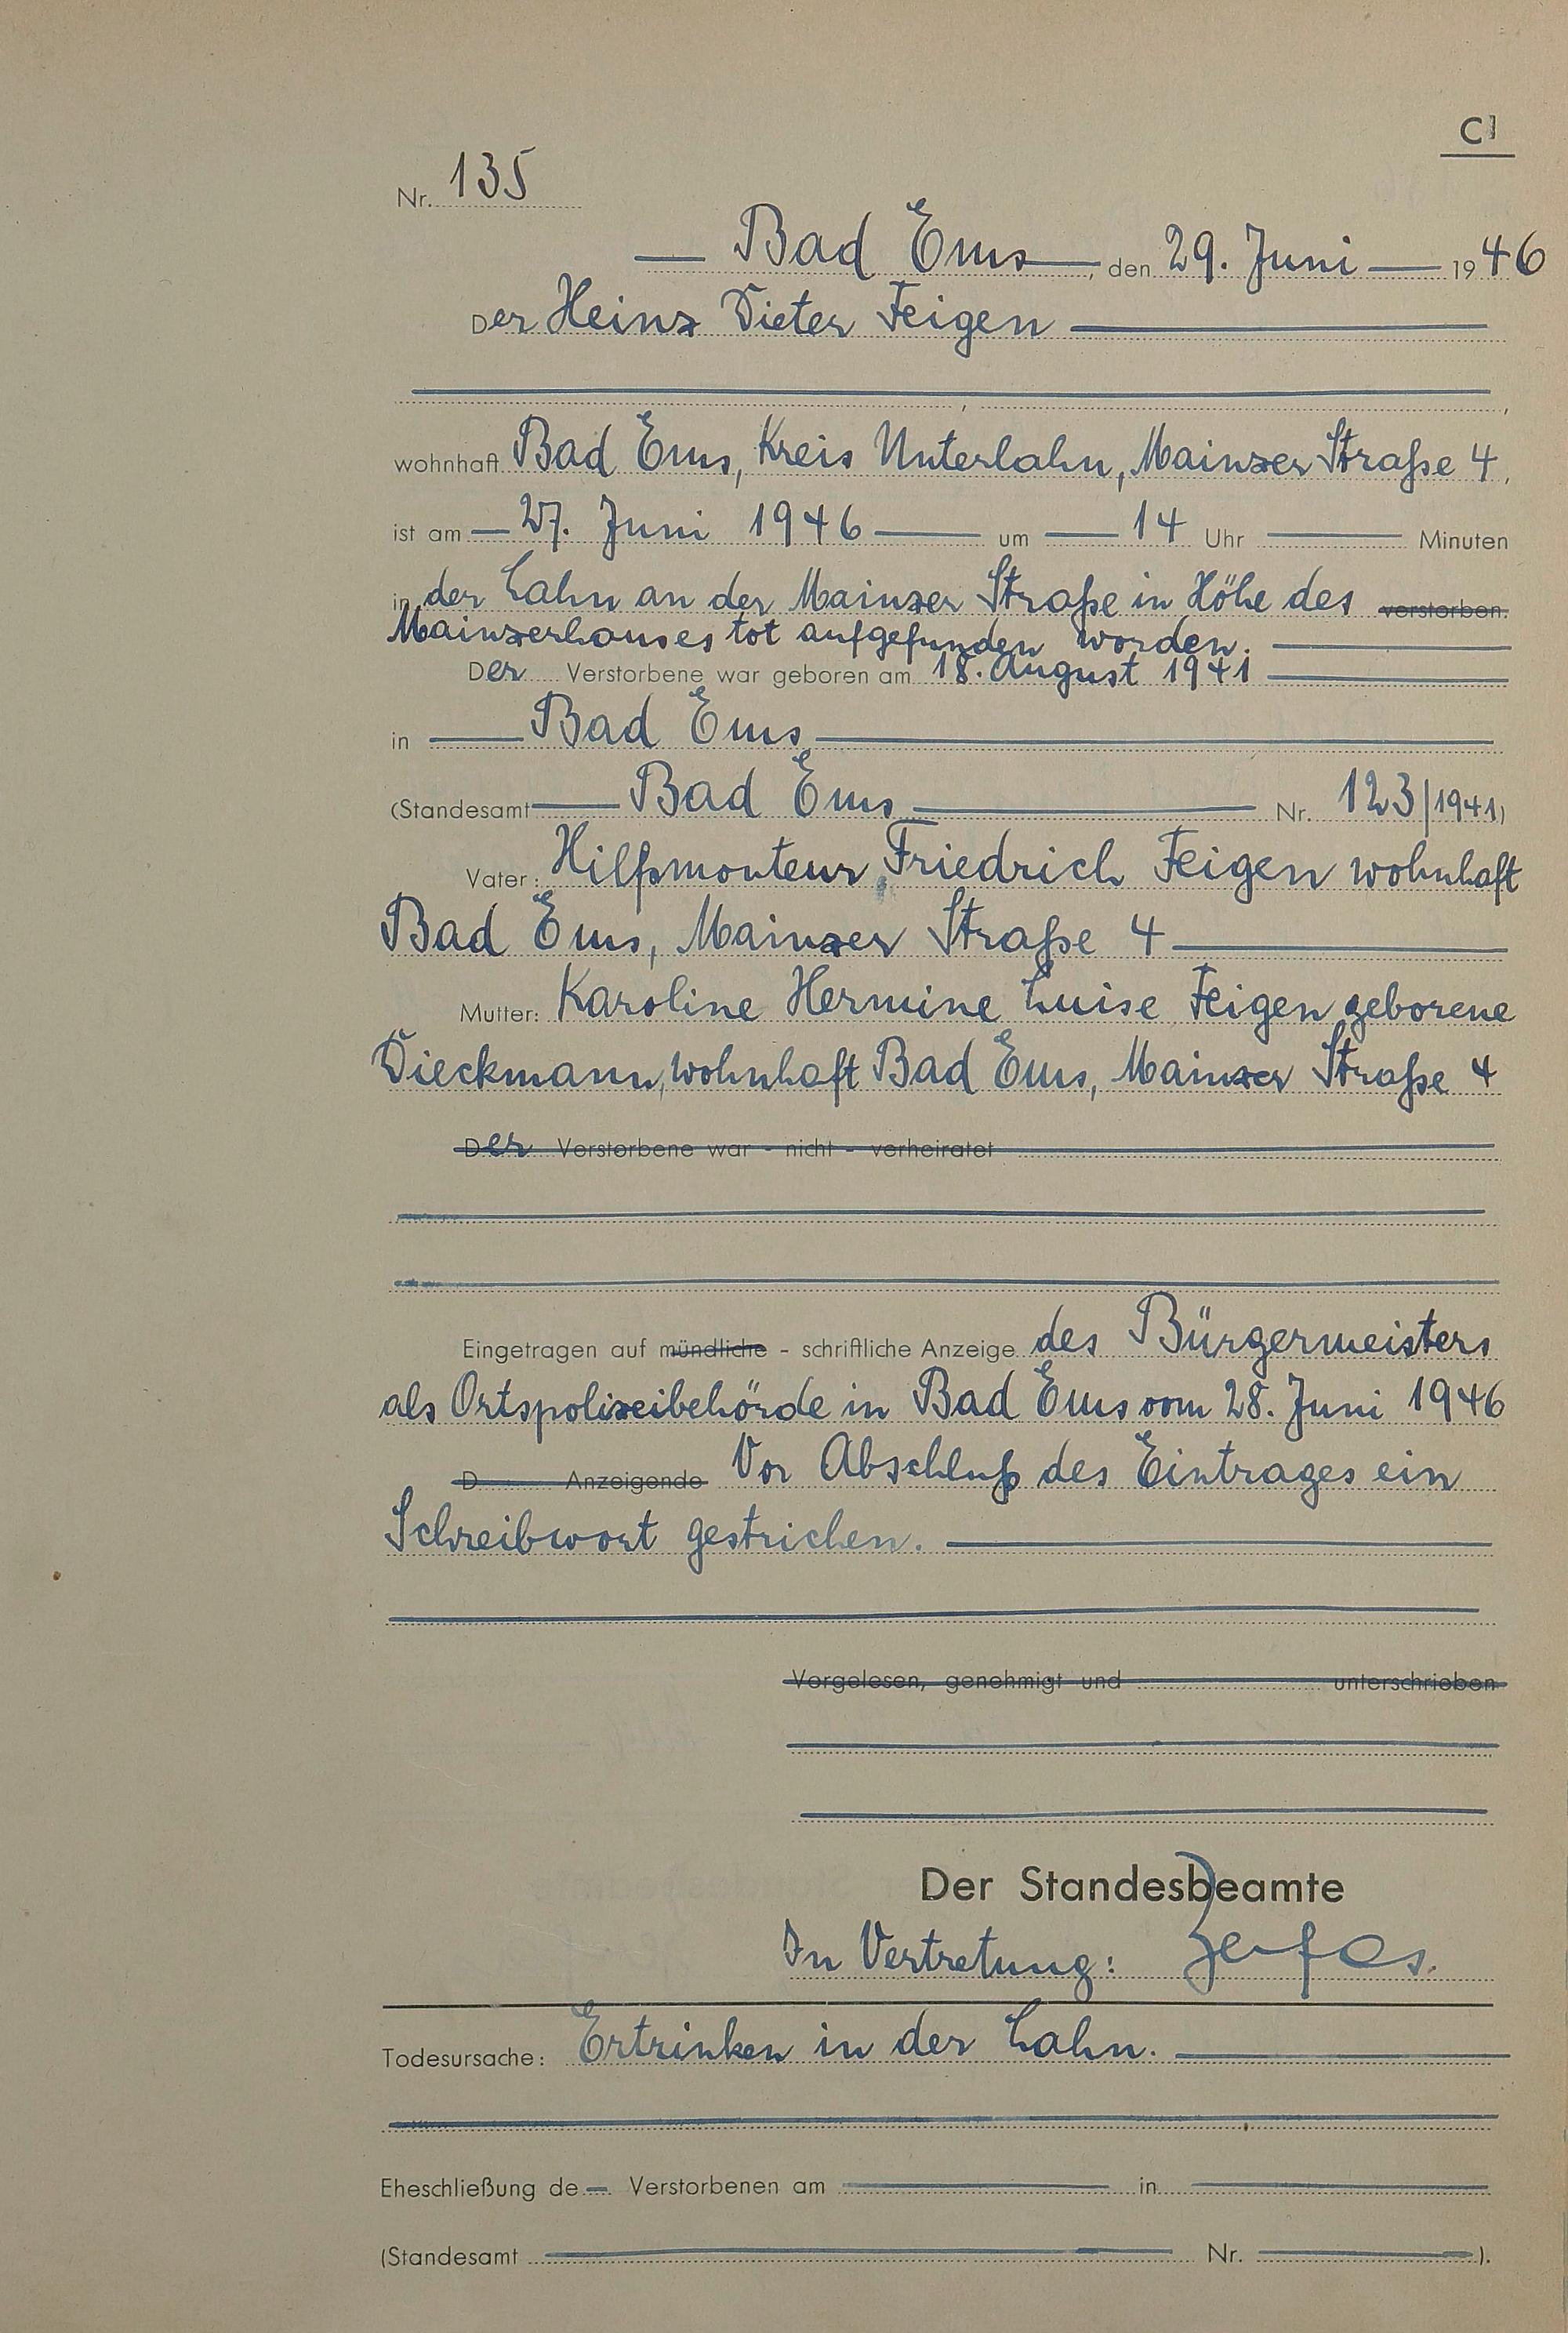 C1
Nr. 135
Bad Ems, den 29. Juni 1946
Der Heinz Dieter Feigen
wohnhaft Bad Ems, Kreis Unterlahn, Mainzer Straße 4,
ist am 27. Juni 1946 um 14 Uhr Minuten
in der Lahn an der Mainzer Straße in Höhe des verstorben.
Mainzerhauses tot aufgefunden worden.
Der Verstorbene war geboren am 18. August 1941
in Bad Ems
(Standesamt Bad Ems Nr. 123/1941)
Vater: Hilfsmonteur Friedrich Feigen wohnhaft
Bad Ems, Mainzer Straße 4
Mutter: Karoline Hermine Luise Feigen geborene
Dieckmann, wohnhaft Bad Ems, Mainzer Straße 4
Der Verstorbene war - nicht - verheiratet
Eingetragen auf mündliche - schriftliche Anzeige des Bürgermeisters
als Ortspolizeibehörde in Bad Ems vom 28. Juni 1946
D Anzeigende Vor Abschluß des Eintrages ein
Schreibwort gestrichen.
Vorgelesen, genehmigt und unterschrieben
Der Standesbeamte
In Vertretung:
Todesursache: Ertrinken in der Lahn.
Eheschließung de Verstorbenen am in
(Standesamt Nr. ).